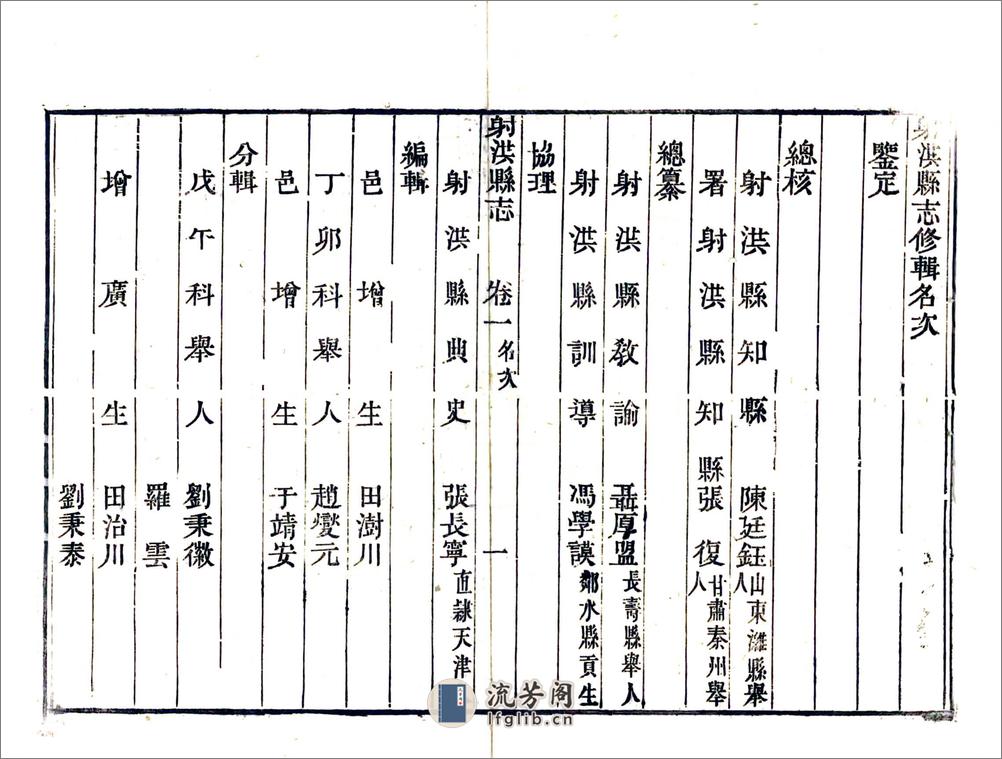 射洪縣志修輯名次
鑒定
總核
射洪縣知縣陳廷鈺山東濰縣舉人
署射洪縣知縣張復甘肅秦州舉人
總纂
射洪縣教諭聶厚盟長壽縣舉人
射洪縣訓導馮學謨鄰水縣貢生
協理
射洪縣志 卷一名次 一
射洪縣典史張長寧直隸天津
編輯
邑增生田澍川
丁卯科舉人趙燮元
邑增生于靖安
分輯
戊午科舉人劉秉徽
羅雲
增廣生田治川
劉秉泰
流芳阁
lfglib.cn